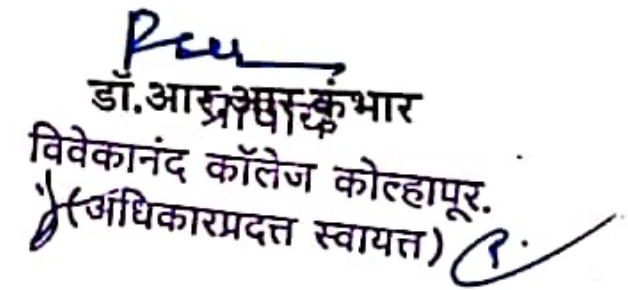 डॉ.आर.आर.कुंभार
विवेकानंद कॉलेज कोल्हापूर.
(अधिकारप्रदत्त स्वायत्त)